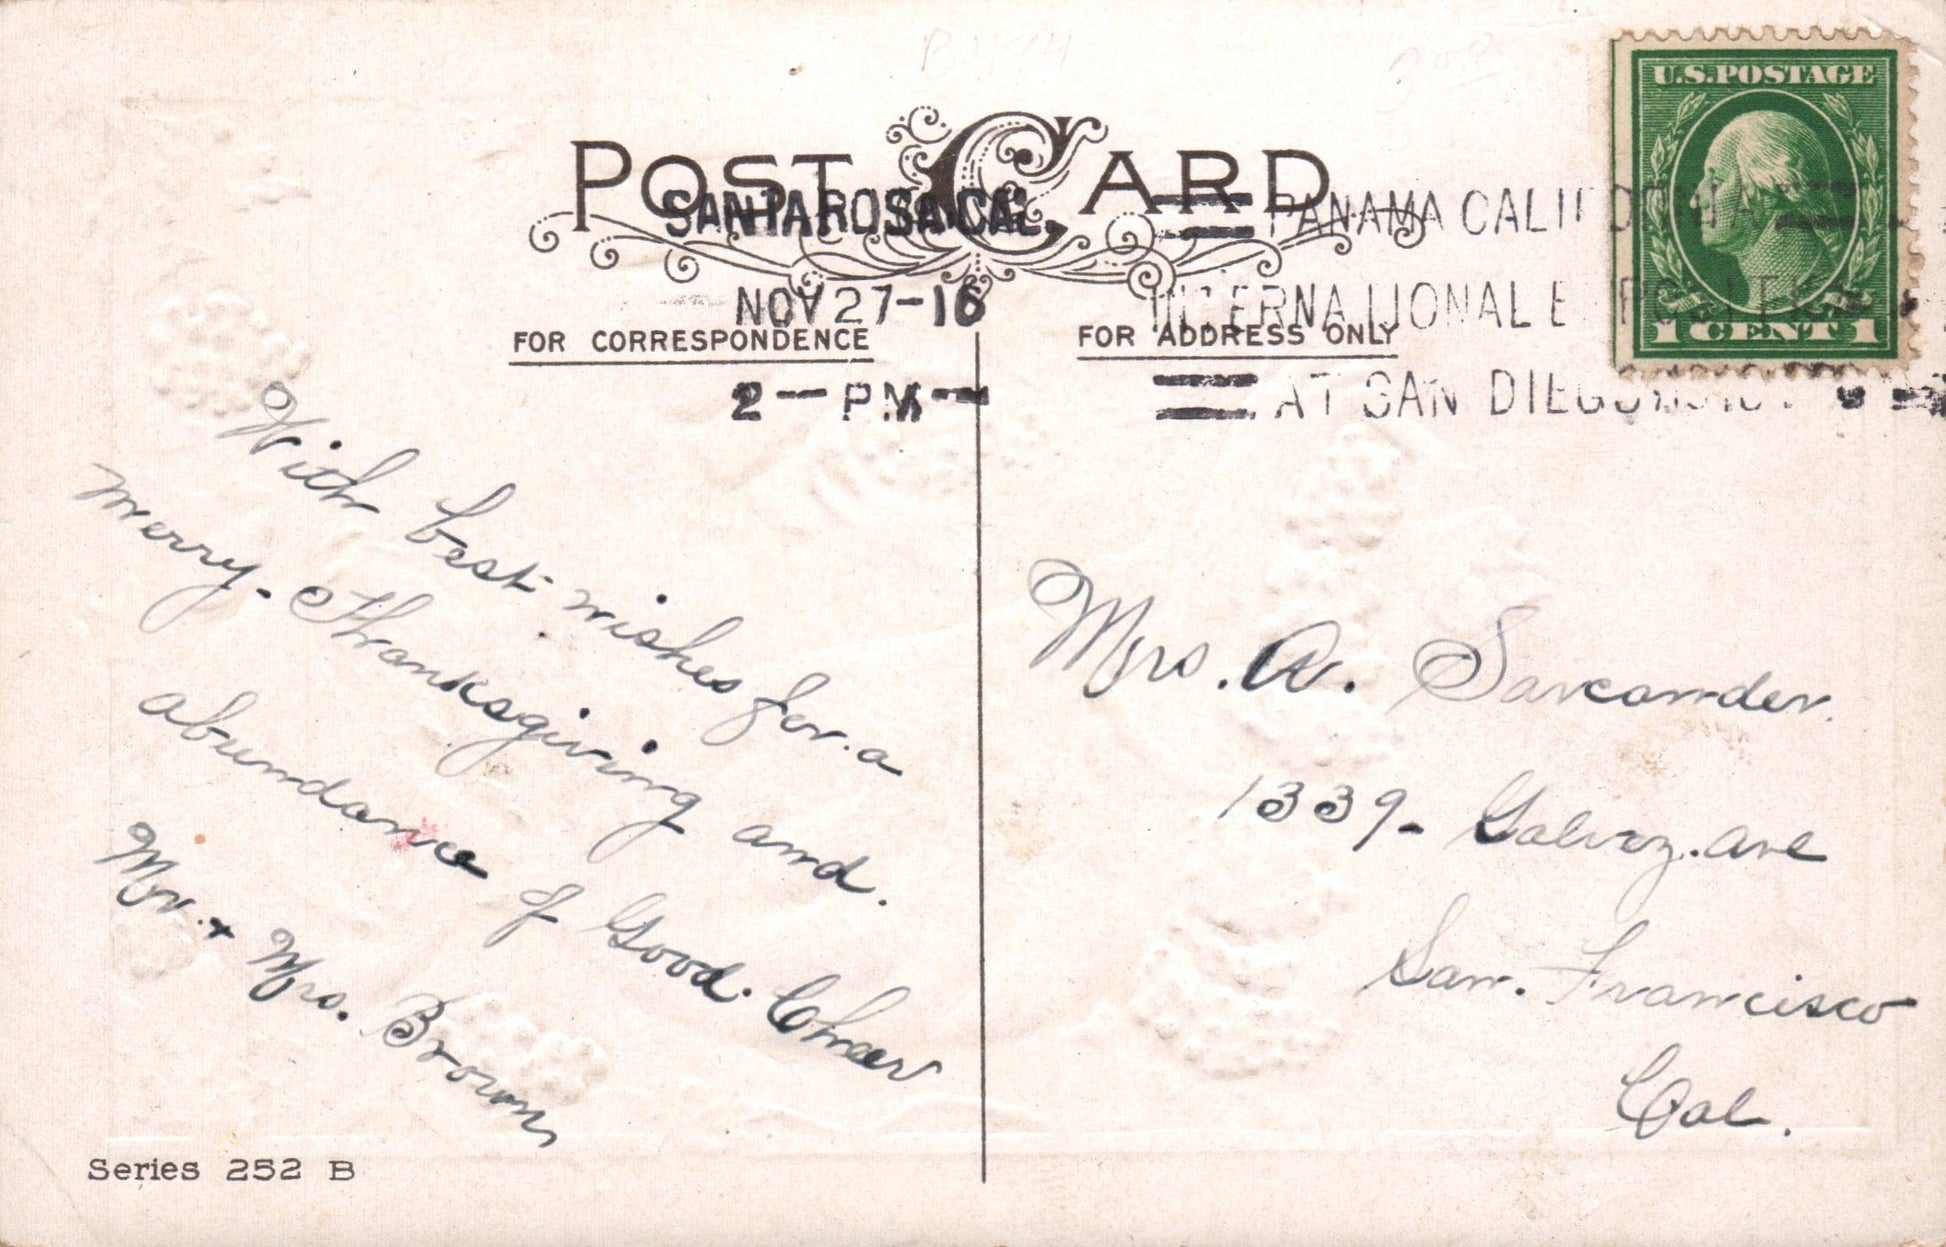 POST CARD
SANTA ROSA CAL.
NOV 27-16
2 - PM -
PANAMA CALIFORNIA
INTERNATIONAL EXPOSITION
AT SAN DIEGO
U.S. POSTAGE
1 CENT 1
FOR CORRESPONDENCE
FOR ADDRESS ONLY
With best wishes for a
merry. Thanksgiving and.
abundance of Good. Cheer
Mr. + Mrs. Brown
Mrs. A. Sarcander.
1339- Galvez. ave
San. Francisco
Cal.
Series 252 B